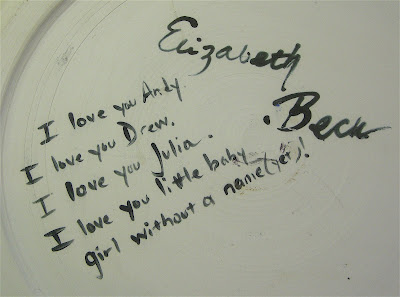 Elizabeth
Beck
I love you Andy
I love you Drew.
I love you Julia.
I love you little baby
girl without a name (yet)!